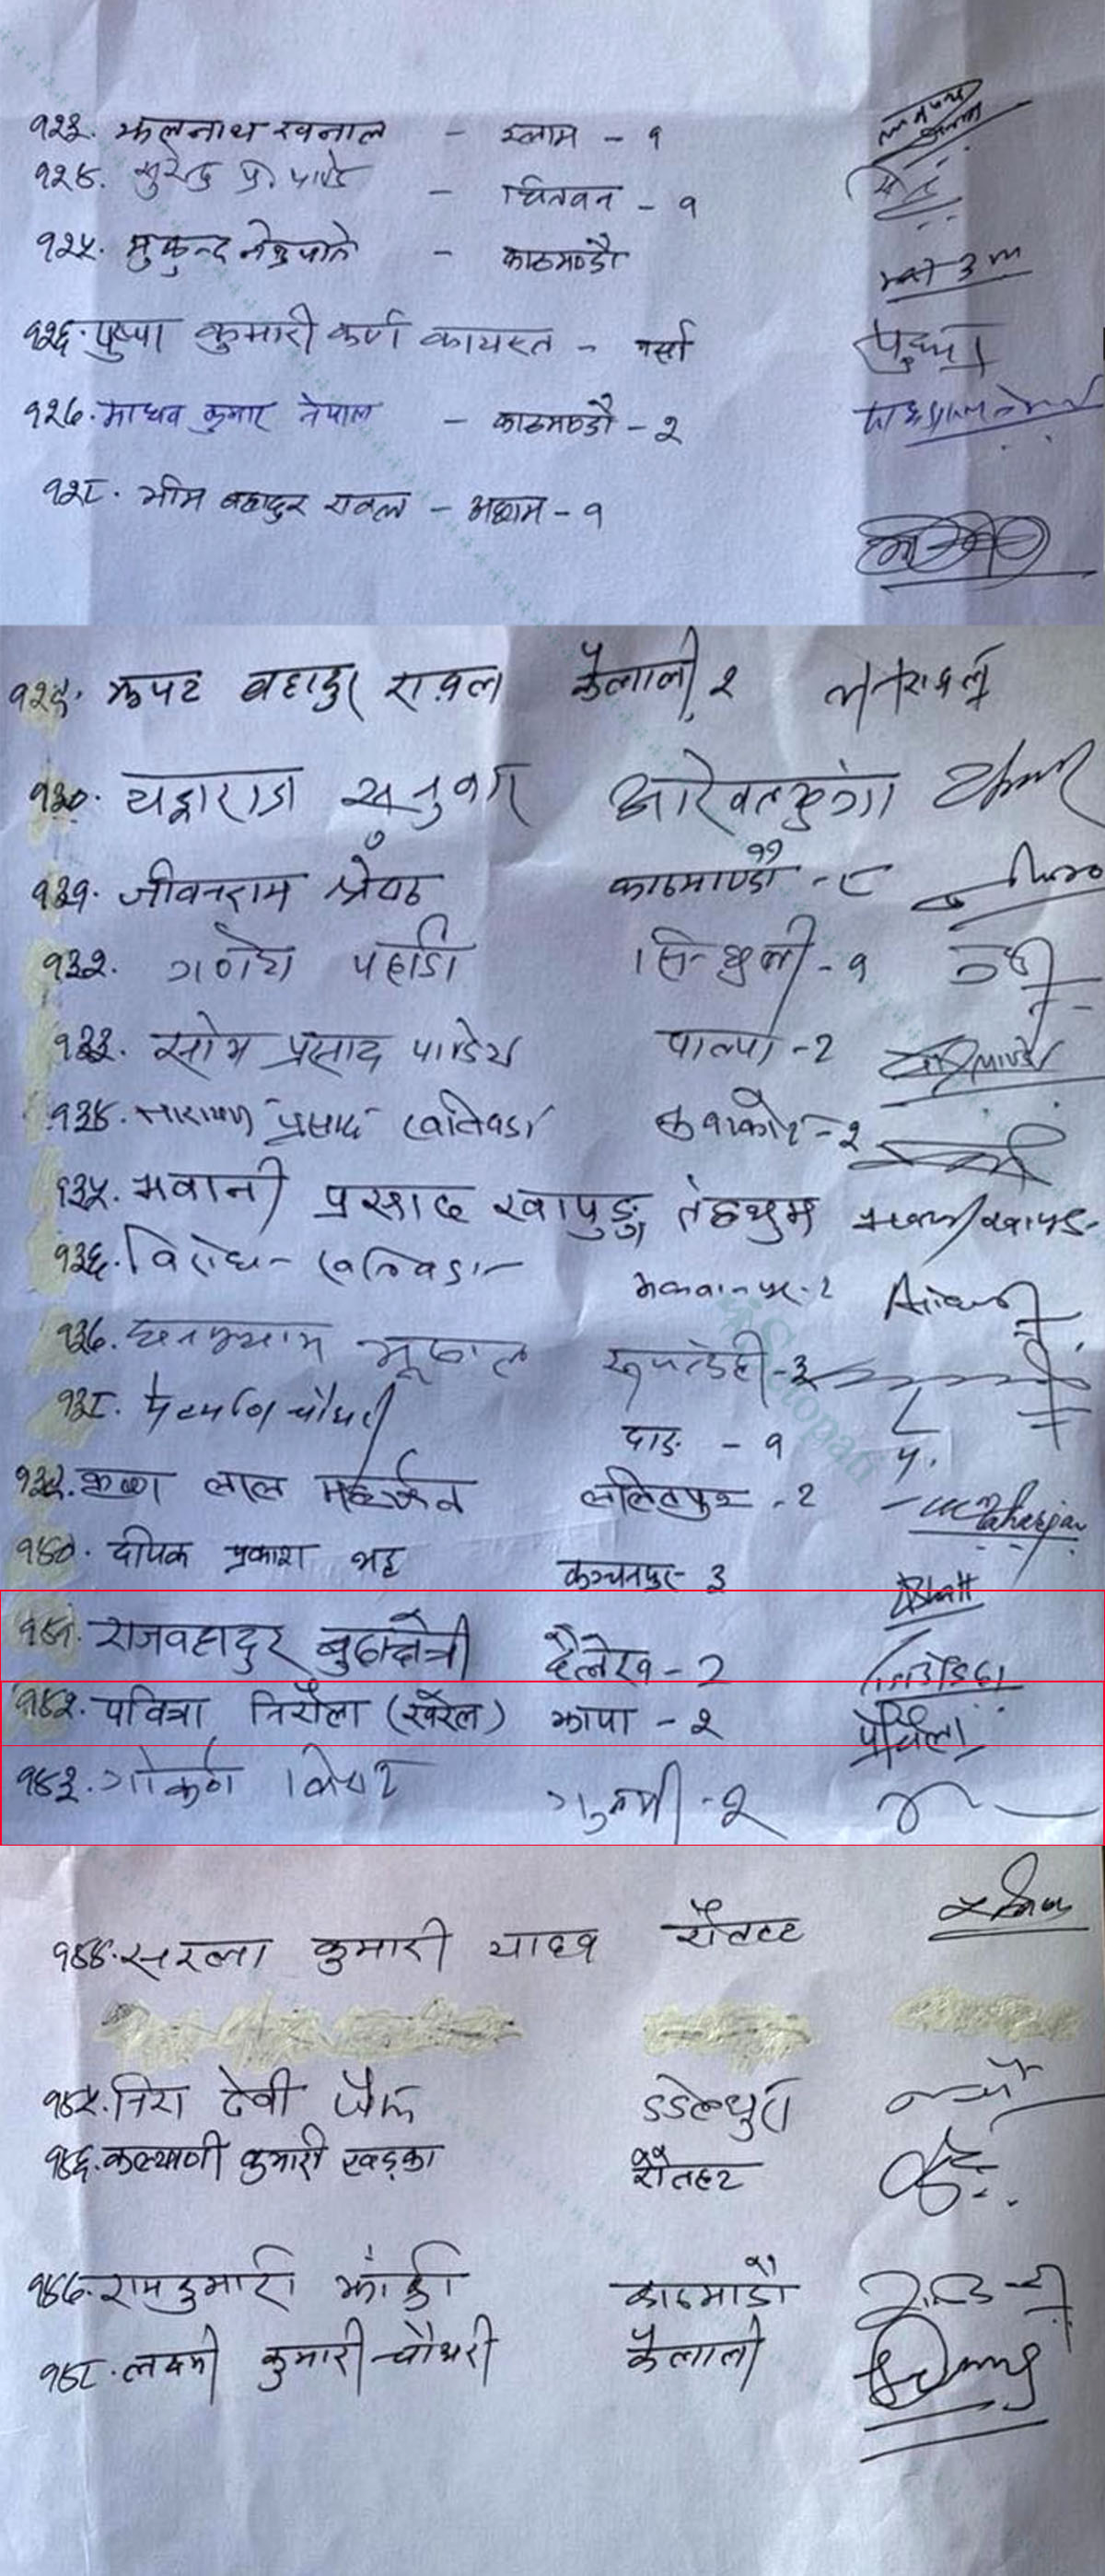 १२३. झलनाथ खनाल - इलाम - १
१२४. सुरेन्द्र प्र. पाण्डे - चितवन - १
१२५. मुकुन्द न्यौपाने - काठमाण्डौ
१२६. पुष्पा कुमारी कर्ण कायस्त - पर्सा
१२७. माधव कुमार नेपाल - काठमाण्डौ - २
१२८. भीम बहादुर रावल - अछाम - १
१२९. झपट बहादुर रावल कैलाली, २
१३०. यज्ञराज सुनुवार ओखलढुंगा
१३१. जीवनराम श्रेष्ठ काठमाण्डौ - ८
१३२. गणेश पहाडी सिन्धुली - १
१३३. सोम प्रसाद पाण्डेय पाल्पा - 2
१३४. नारायण प्रसाद खतिवडा नुवाकोट - २
१३५. भवानी प्रसाद खापुङ्ग तेह्रथुम
१३६. विरोध खतिवडा मकवानपुर - 2
१३७. घनश्याम भूसाल रूपन्देही - ३
१३८. मेटमणि चौधरी दाङ - १
१३९. कृष्ण लाल महर्जन ललितपुर - 2 Maharjan
१४०. दीपक प्रकाश भट्ट कञ्चनपुर - ३ Bhatt
१४१. राजबहादुर बुढाक्षेत्री दैलेख - 2
१४२. पवित्रा निरौला (खरेल) झापा - २
१४३. गोकर्ण विष्ट गुल्मी - २
Setopati
१४४. सरला कुमारी यादव रौतहट
१४५. निरा देवी जैरू डडेल्धुरा
१४६. कल्याणी कुमारी खड्का रौतहट
१४७. रामकुमारी झाँक्री काठमाडौं
१४८. लक्ष्मी कुमारी चौधरी कैलाली